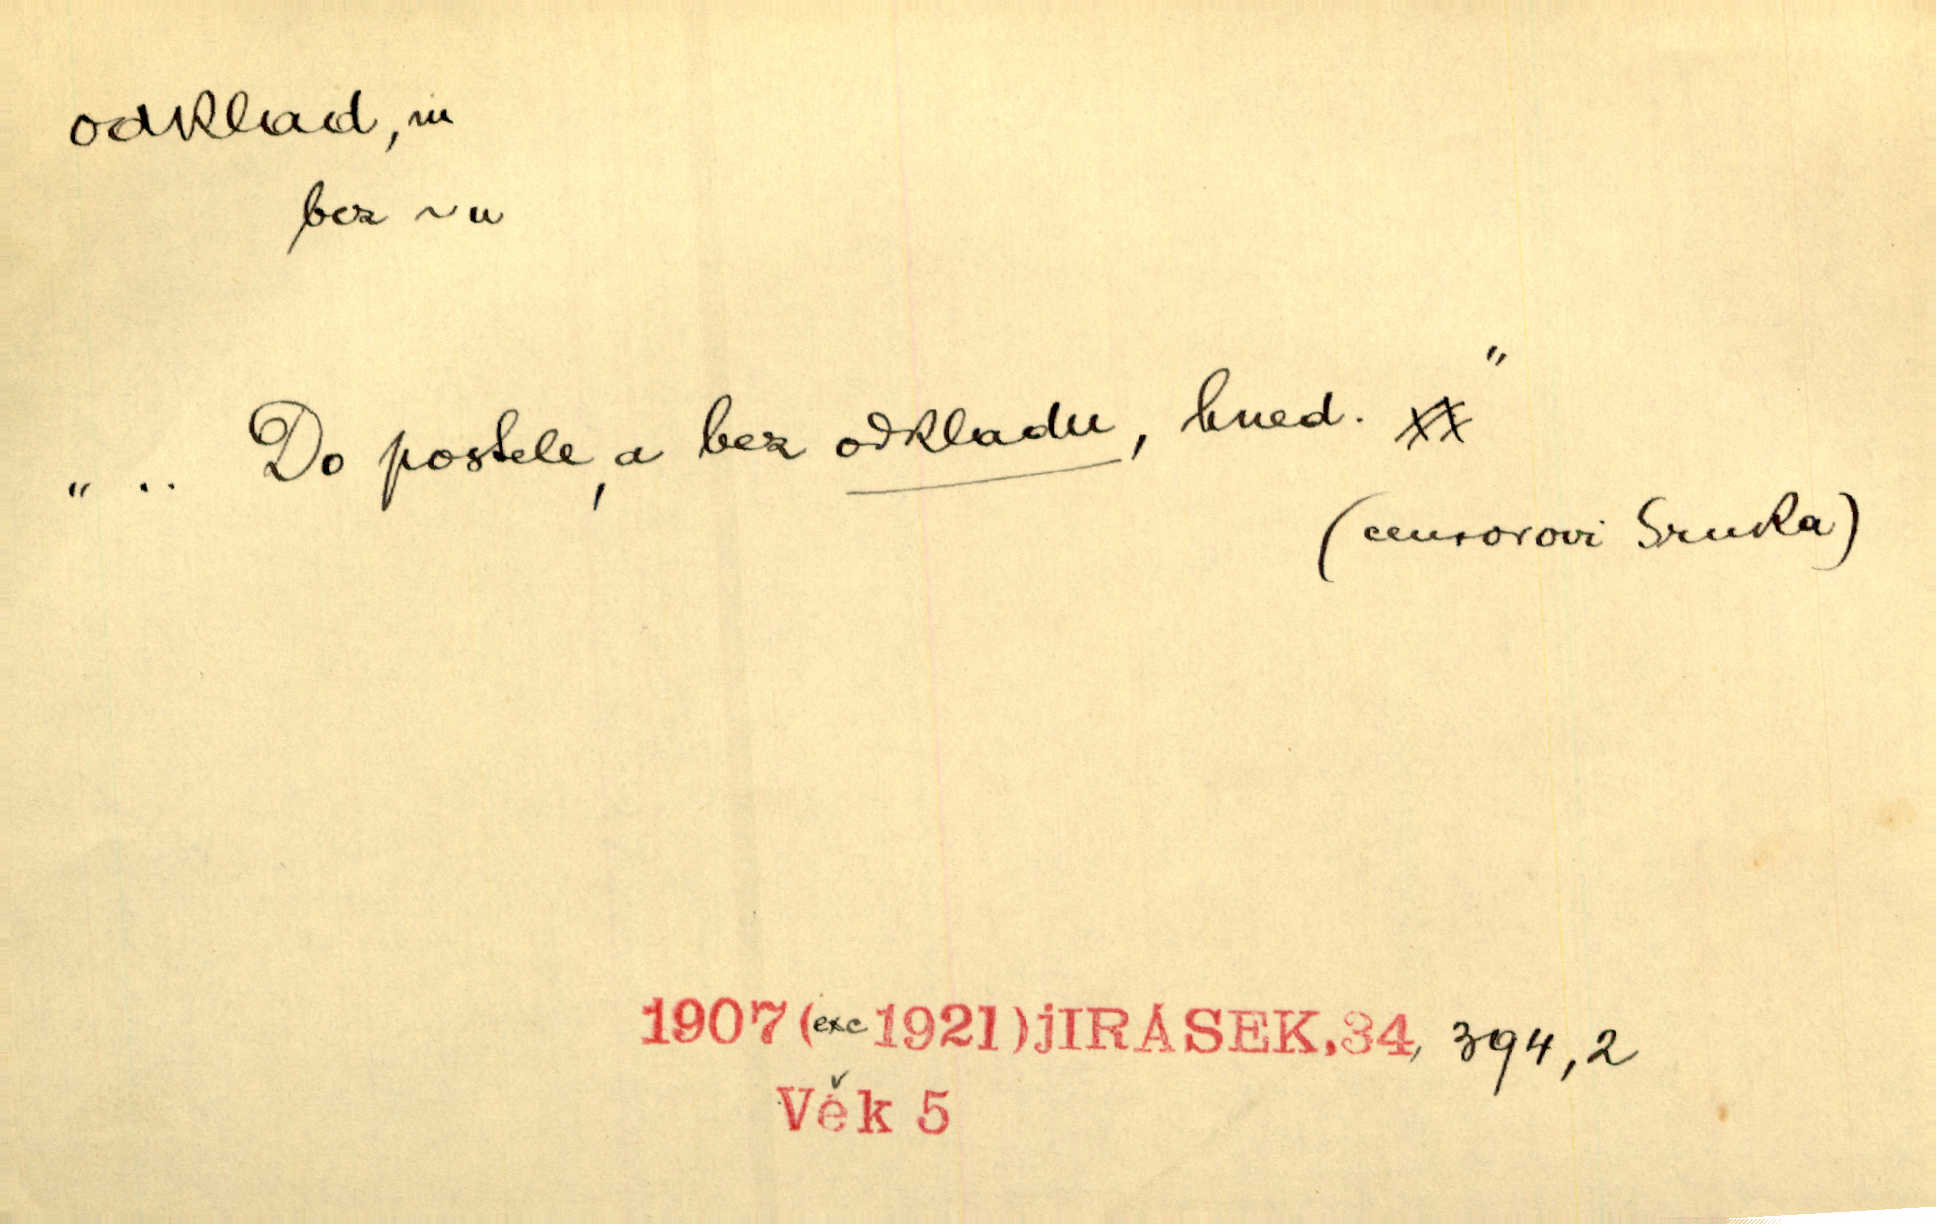 odklad, m
bez ~u
„ .. Do postele, a bez odkladu, hned. "
(censorovi Sruka)
1907 (exc 1921) jIRÁSEK, 34, 394,2
Věk 5